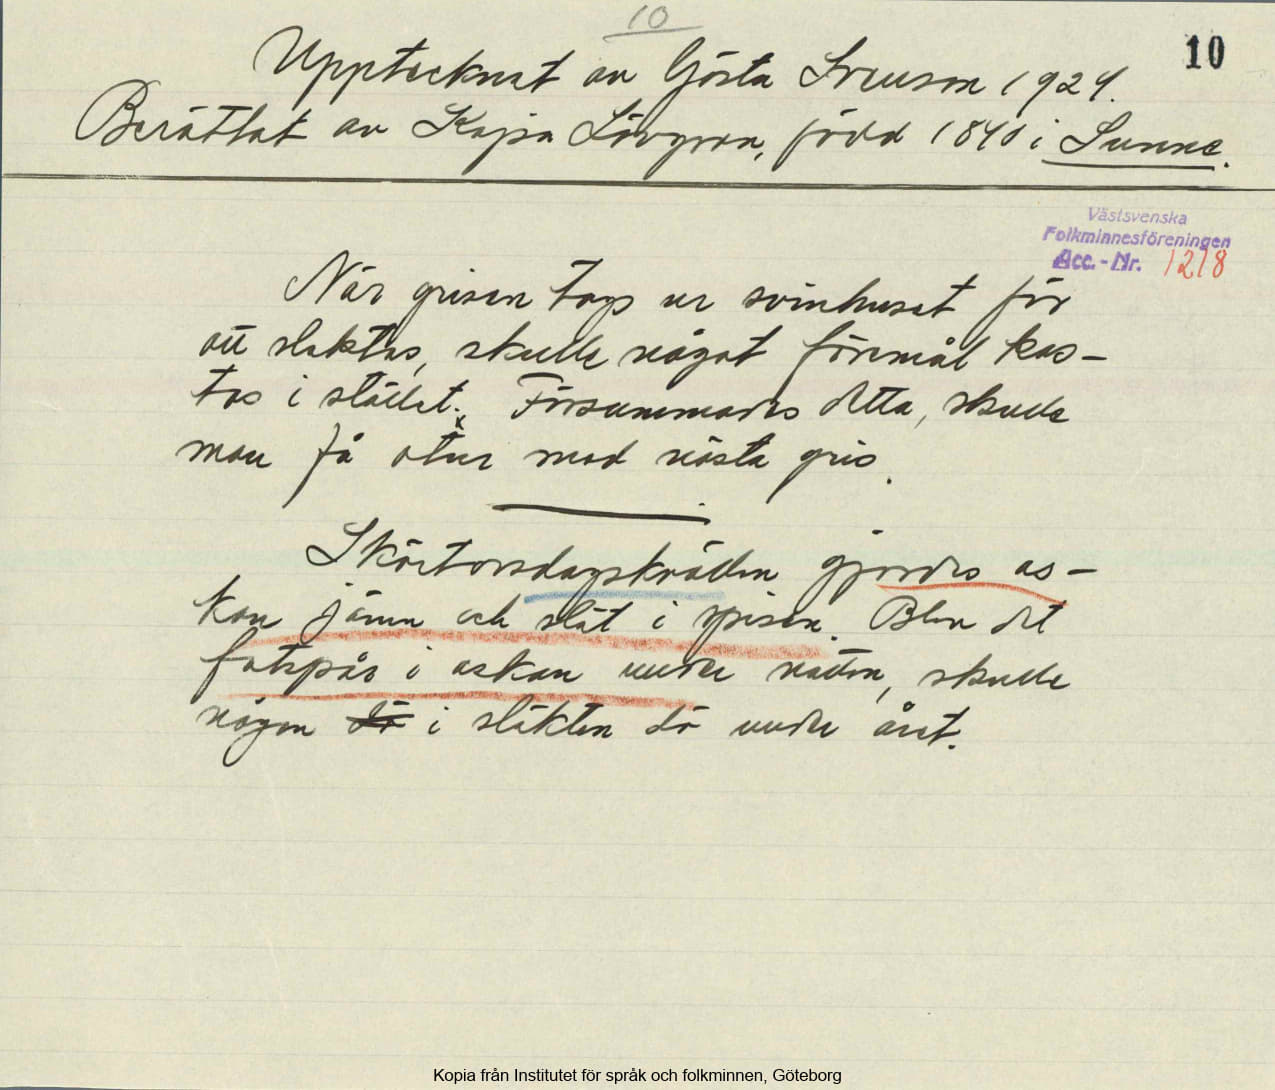 10
10
Upptecknat av Gösta Svenson 1924.
Berättat av Kajsa Lövgren, född 1840 i Sunne.
Västsvenska
Folkminnesföreningen
Acc. - Nr. 1218
När grisen togs ur svinhuset för
att slaktas, skulle något föremål kas-
tas i stället. Försummades detta, skulle
man få otur med nästa gris.
Skärtorsdagskvällen gjordes as-
kan jämn och slät i spisen. Blev det
fotspår i askan under natten, skulle
någon dö i släkten dö under året.
Kopia från Institutet för språk och folkminnen, Göteborg